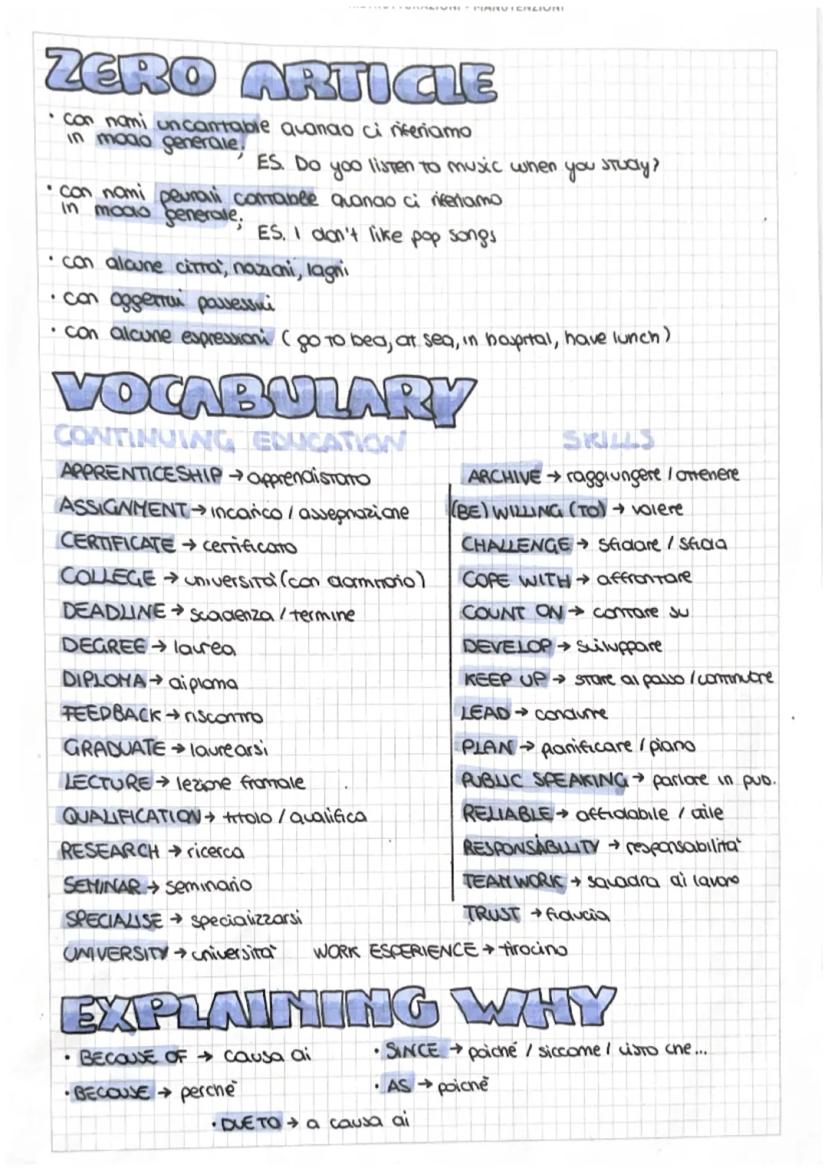 ZERO ARTICLE
• con nomi uncantable quando ci riferiamo
in modo generale;
ES. Do yoo listen to music when you study?
• con nomi peurali contabee quando ci riferiamo
in modo generale;
ES. I don't like pop songs
• con alcune città, nazioni, laghi
• con aggettivi possessivi
• con alcune espressioni (go to bed, at sea, in hospital, have lunch)
VOCABULARY
CONTINUING EDUCATION
APPRENTICESHIP → apprendistato
ASSIGNMENT → incarico / assegnazione
CERTIFICATE → certificato
COLLEGE → università (con dormitorio)
DEADLINE → scadenza / termine
DEGREE → laurea
DIPLOMA → diploma
FEEDBACK → riscontro
GRADUATE → laurearsi
LECTURE → lezione fromale
QUALIFICATION → titolo / qualifica
RESEARCH → ricerca
SEMINAR → seminario
SPECIALISE → specializzarsi
UNIVERSITY → università
SKILLS
ARCHIVE → raggiungere / ottenere
(BE) WILLING (TO) → volere
CHALLENGE → sfidare / sfida
COPE WITH → affrontare
COUNT ON → contare su
DEVELOP → sviluppare
KEEP UP → stare al passo / continuare
LEAD → condurre
PLAN → pianificare / piano
PUBLIC SPEAKING → parlare in pub.
RELIABLE → affidabile / utile
RESPONSABILITY → responsabilità
TEAMWORK → squadra di lavoro
TRUST → fiducia
WORK ESPERIENCE → tirocino
EXPLAINING WHY
• BECOUSE OF → causa di
• SINCE → poiché / siccome / visto che...
• BECOUSE → perchè
• AS → poichè
• DUE TO → a causa di